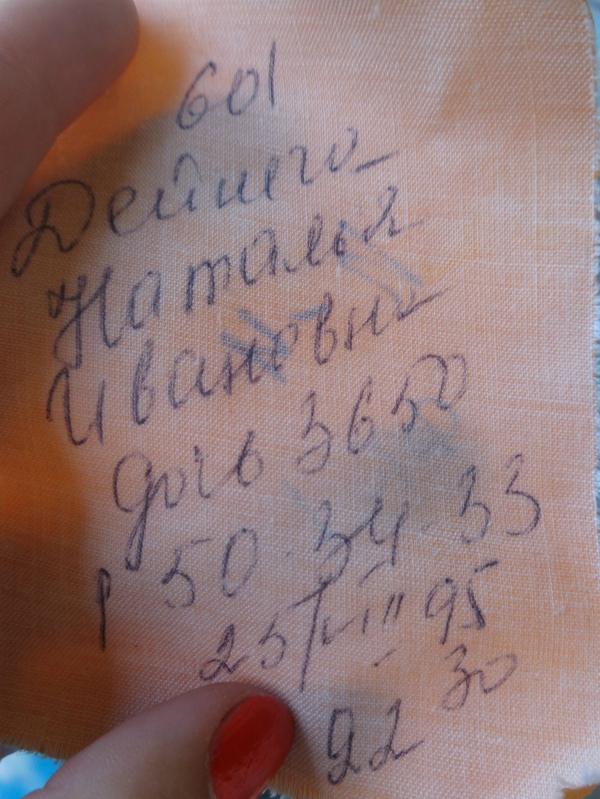 601
Дейнего
Наталья
Ивановна
дочь 3650
р 50.34.33
25/VIII 95
22 30